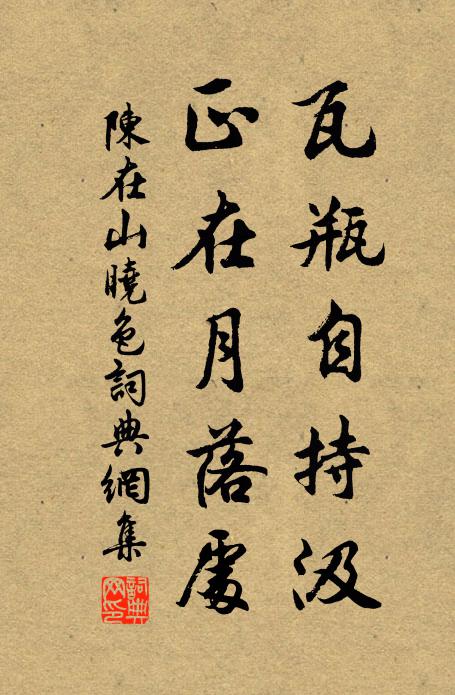 瓦瓶自持汲
正在月落處
陳在山曉色詞典網集
詞典網印